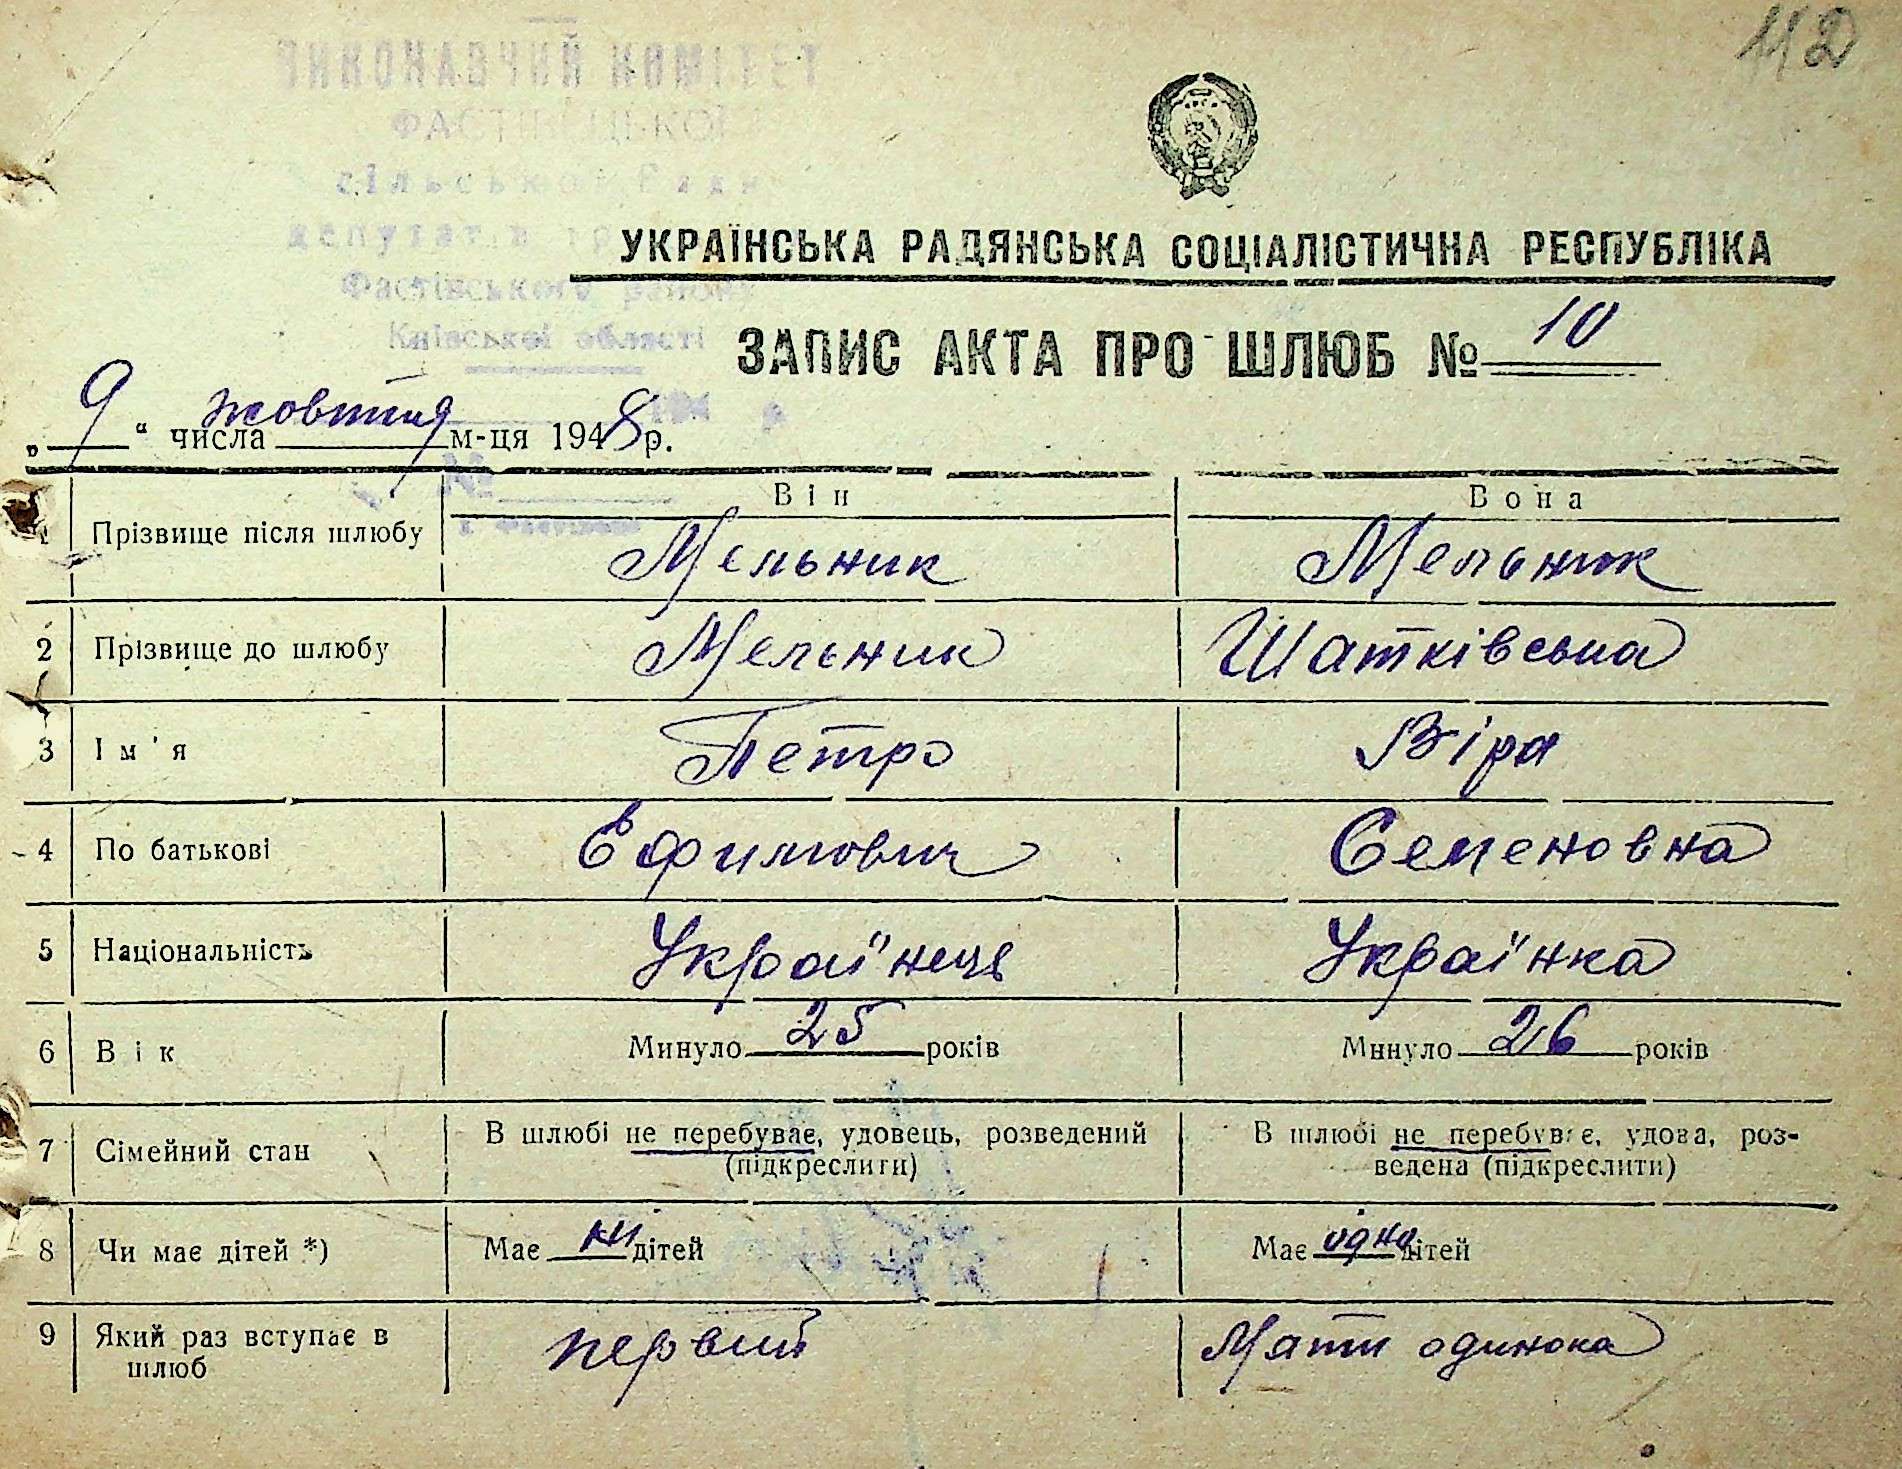 112
ВИКОНАВЧИЙ КОМІТЕТ
сільської Ради
депутатів
Фастівського району
Київської області
УКРАЇНСЬКА РАДЯНСЬКА СОЦІАЛІСТИЧНА РЕСПУБЛІКА
ЗАПИС АКТА ПРО ШЛЮБ № 10
„ 9 “ числа жовтня м-ця 1948 р.
Він Вона
1 Прізвище після шлюбу Мельник Мельник
2 Прізвище до шлюбу Мельник Шатківська
3 Ім'я Петро Віра
4 По батькові Ефимович Семеновна
5 Національність Українець Українка
6 Вік Минуло 25 років Минуло 26 років
7 Сімейний стан В шлюбі не перебуває, удовець, розведений В шлюбі не перебуває, удова, роз-
(підкреслити) ведена (підкреслити)
8 Чи має дітей *) Має ни дітей Має одно дітей
9 Який раз вступає в первий Мати одинока
шлюб